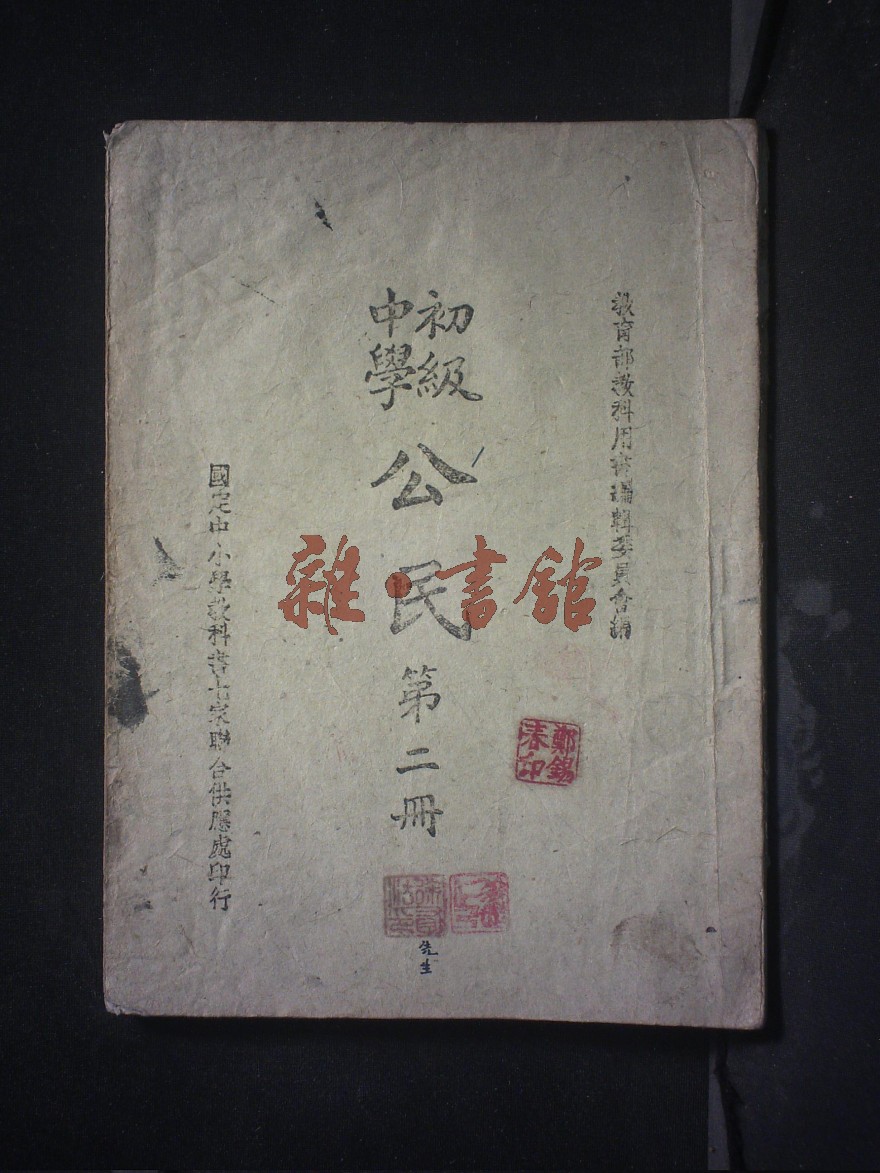 教育部教科用書編輯委員會編
初級
中學
公民
第二冊
國定中小學教科書七家聯合供應處印行
雜·書館
鄭錫
春印
先生